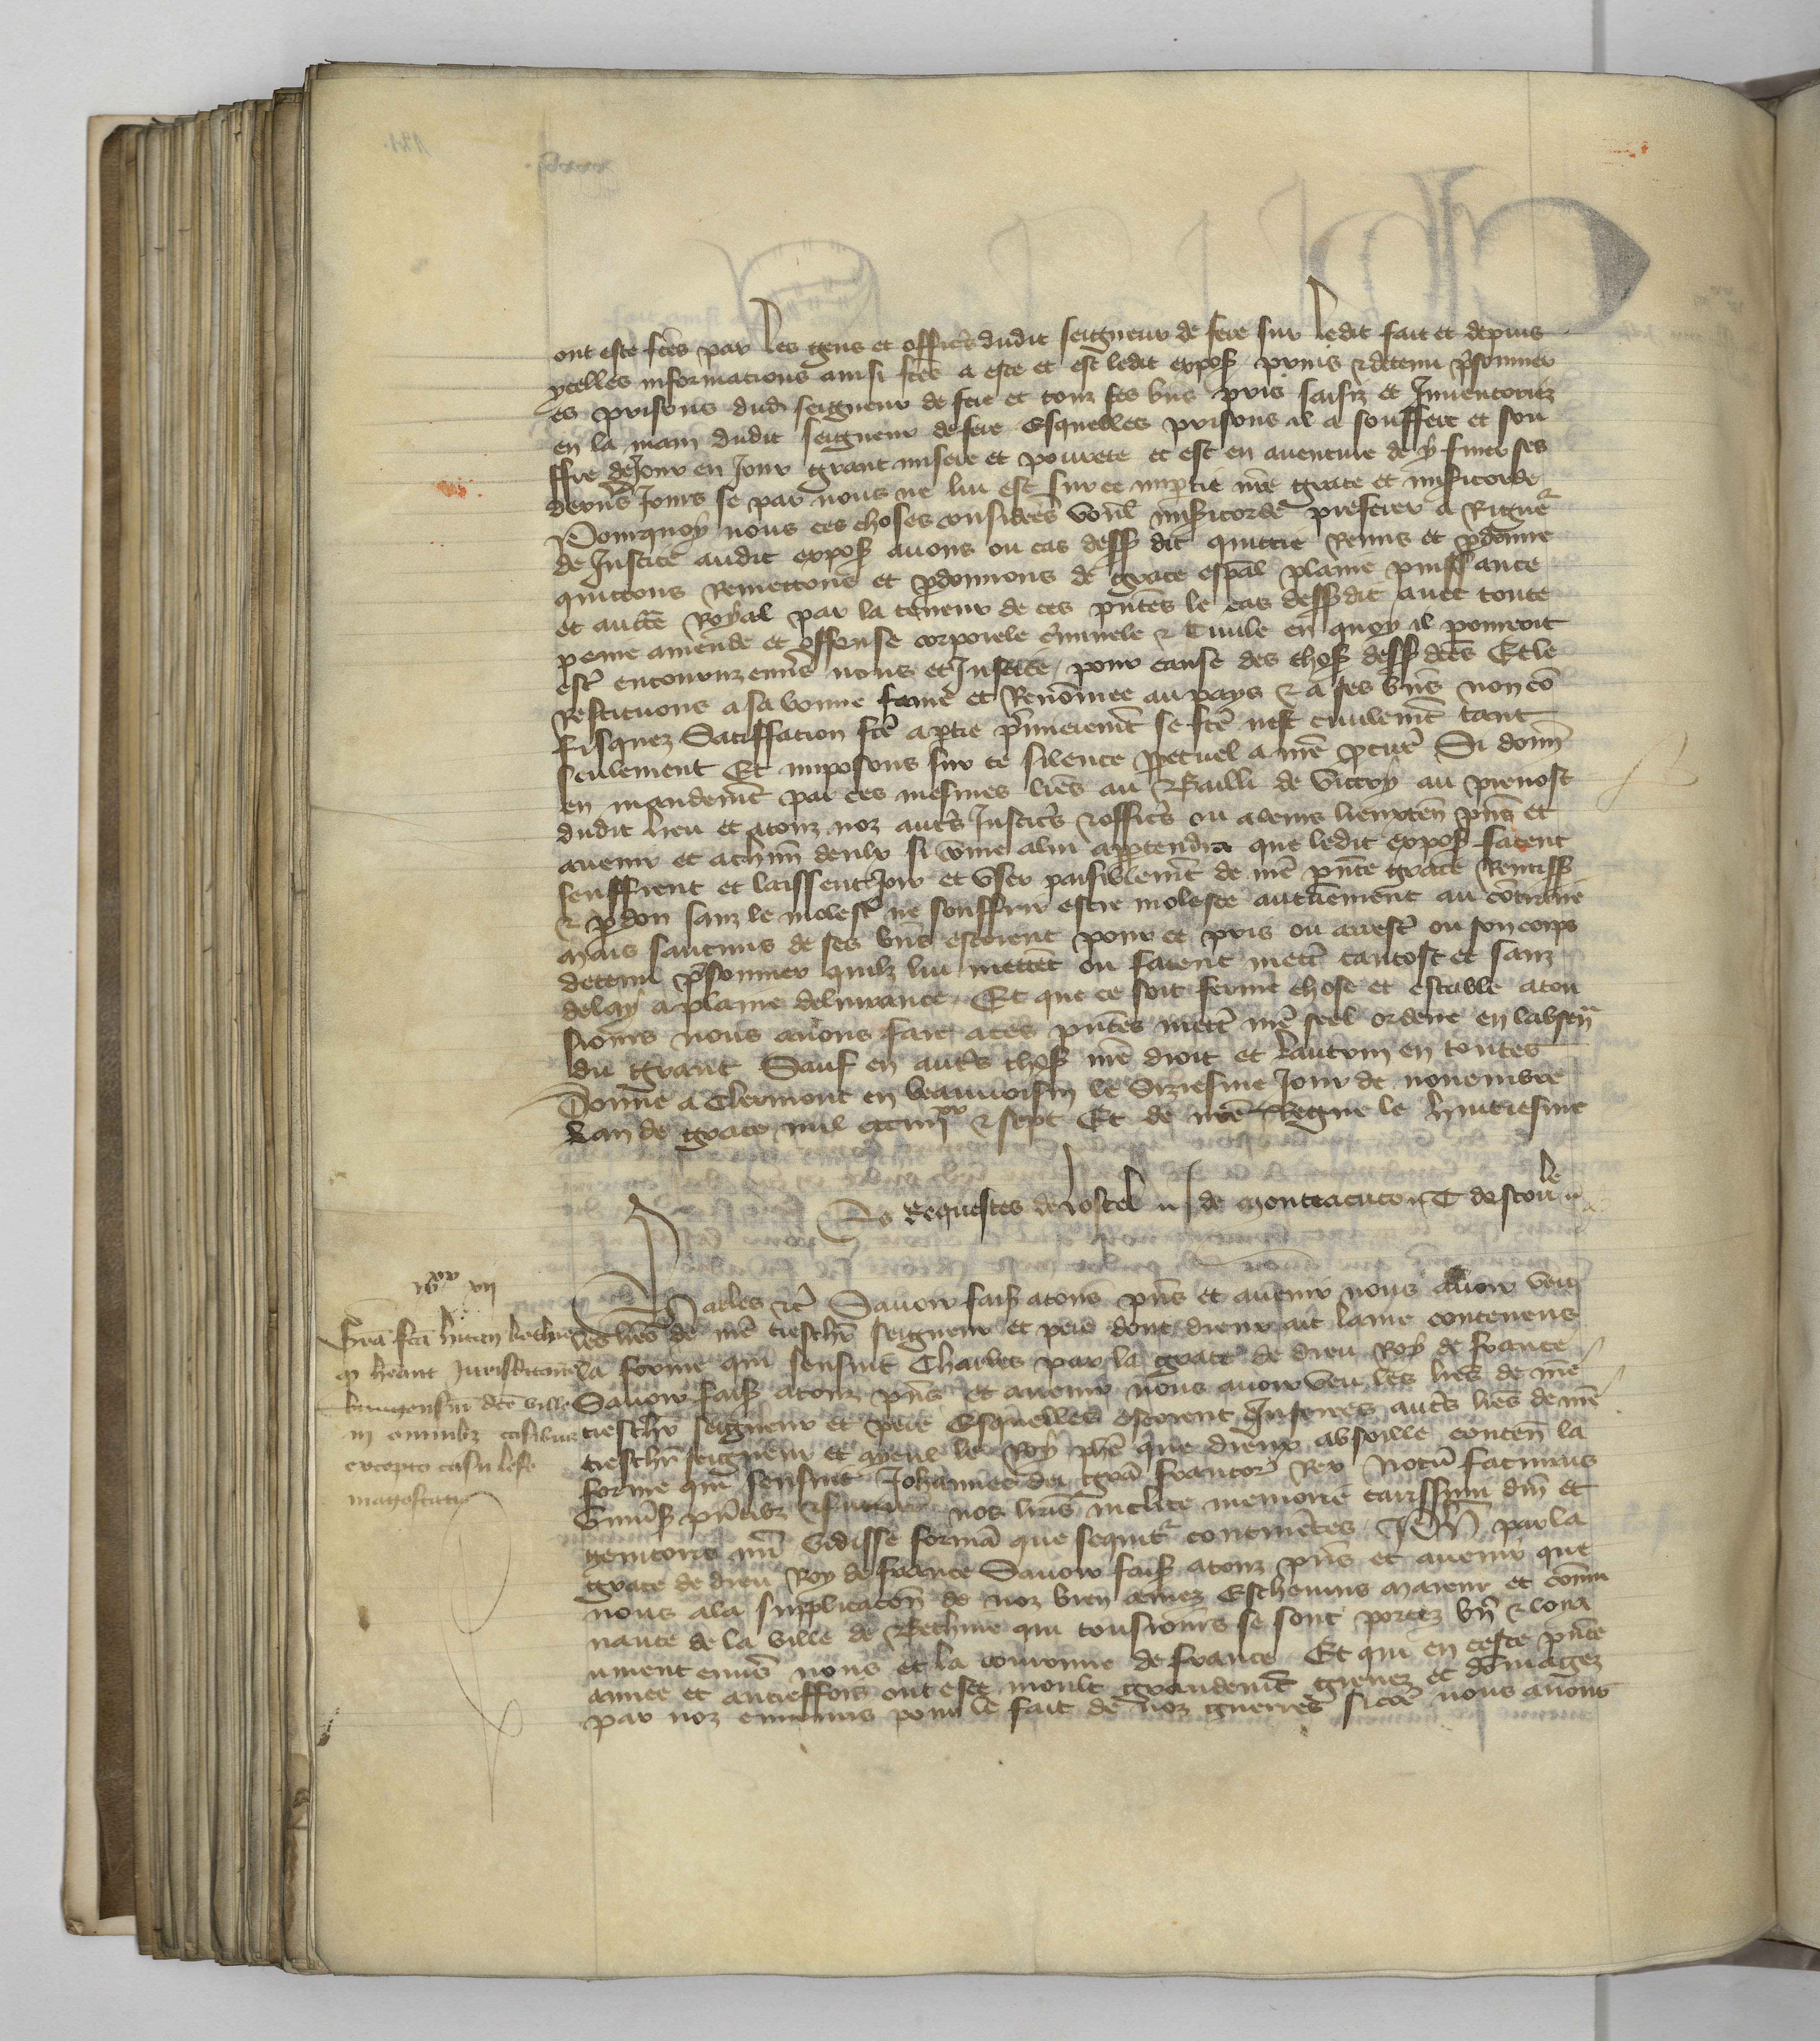 ont este fces par les gens et officrs dudit seigneur de fere sur ledit fait et depuis
ycelles informacions ainsi fces a este et est ledit expos prins & detenu prsonnier
es prisons dud seigneur de fere et touz ses bns pris saisiz et Inventoriez
en la main dudit seigneur de fere Esquelles prisons il a souffert et sou
ffre de Jour en Jour grant misere et povrete et est en aventure de y finer ses
derns Jours se par nous ne lui est sur ce impartie nre grace et misicorde
Pourquoy nous ces choses considres voul misicorde preferer a Rigur
de Justice audit expos avons ou cas dess dit quittie Remis et pdonne
quittons Remettons et pdonnons de grace espal plaine puissance
et aucte Royal par la teneur de ces pntes le cas dessdit avec toute
peine amende et offense corporele criminele & civile en quoy il pourroit
estr encouruz envs nous et Justice pour cause des chos dess dces Et le
Restituons a sa bonne fame et Renommee au pays & a ses bns non co
fisquez Satiffacion fce a ptie prmierement se fce nest civilemt tant
seulement Et imposons sur ce silence ppetuel a nre pcur Si donn
en mandemt par ces mesmes lres au Bailli de Vitry au prevost
dudit lieu et a touz noz autrs Justicrs & officrs ou a leurs lieuxten pns et
avenir et a chun deulx si comme a lui appartendra que ledit expos facent
seuffrent et laissent Joir et user paisiblemt de nre pnte grace Remiss
& pdon sanz le molestr ne souffrir estre moleste autrement au contraire
mais saucuns de ses bns estoient pour ce pris ou arrestr ou son corps
detenu prsonnier quilz lui mettet ou facent mettr tantost et sanz
delay a plaine delivrance Et que ce soit ferme chose et estable a tou
siours nous avons fait a ces pntes mettr nre seel ordene en labsen
du grant Sauf en autrs chos nre droit et lautruy en toutes
Donne a Clermont en beauvoisin le Siziesme Jour de novembre
Lan de grace mil ccc iiijxx & sept Et de nre Regne le huitiesme
Es Requestes de lostel J de monteacuto
Karles &c Savoir fais a tous pns et avenir nous avoir veu
les lres de nre trescher seigneur et pere dont dieux ait lame contenens
la forme qui sensuit Charles par la grace de dieu Roy de france
Savoir fais a touz pns et avenir nous avoir veu les lres de nre
trescher seigneur et pere Esquelles estoient Inserees autrs lres de nre
trescher seigneur et ayeul le Roy phe que dieux absoille conten la
forme qui sensuit Johannes dei gra francor Rex Notu facimus
Univs pntibz & futuris nos lras inclite memorie carissimi dni et
genitoris nri vidisse forma que sequitr continetes Phe par la
grace de dieu Roy de france Savoir fais a touz pns et avenir que
nous a la supplicacon de noz bien amez Eschevins maieur et comu
naute de la ville de Bethune qui tousiours se sont portez bn & loya
ument envs nous et la couronne de france Et qui en ceste pnte
annee et autreffois ont este moult grandemt grevez et domagez
par noz ennemis pour le fait de noz guerres si coe nous avons
viixx vii
Gra fca hitan bethun
q heant Jurisdicionem
burgensiu dce ville
in omnibz casibus
excepto casu lese
magestatis